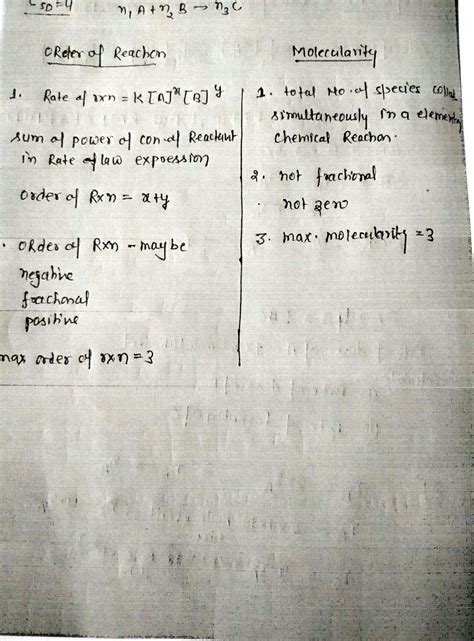 n₁A + n₂B → n₃C
Order of Reaction
1. Rate of rxn = K[A]ˣ[B]ʸ
sum of power of con. of Reactant
in Rate of law expression
order of Rxn = x+y
. Order of Rxn - maybe
negative
fractional
positive
max order of rxn = 3
Molecularity
1. total No. of species
simultaneously in a
Chemical Reaction.
2. not fractional
not zero
3. max. molecularity = 3